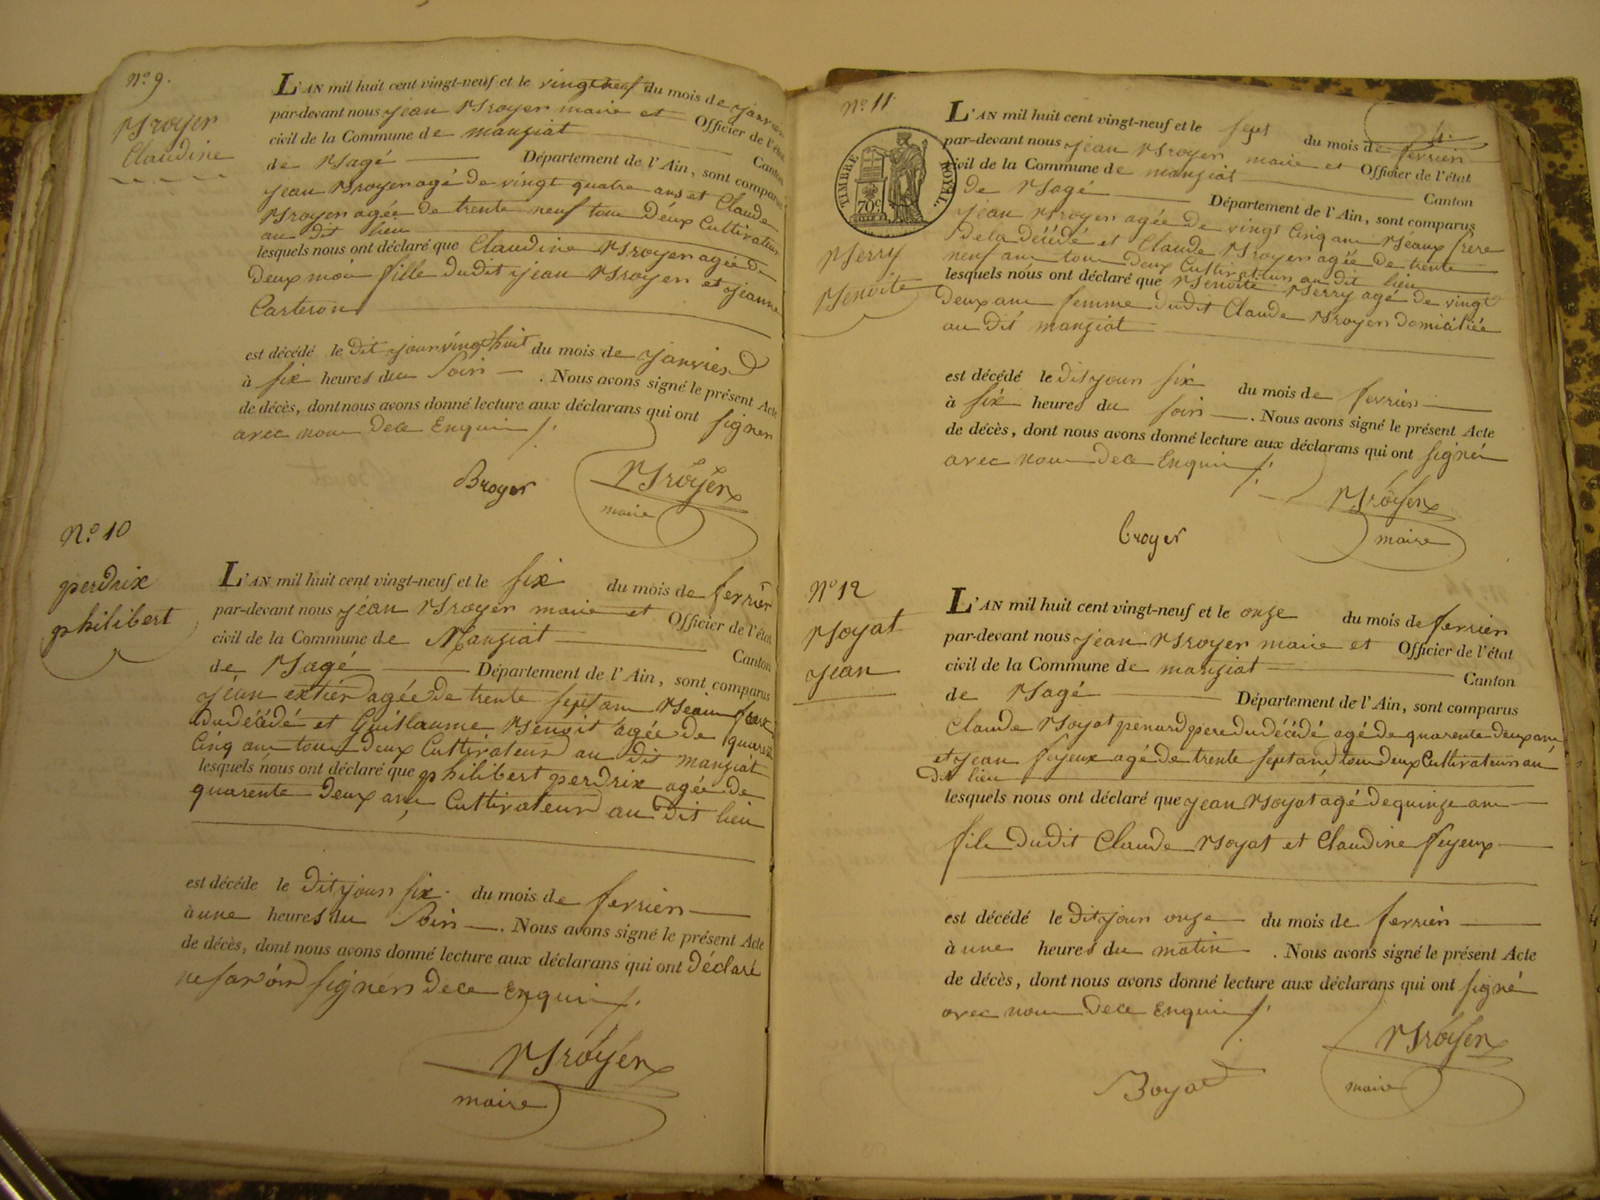 N.º 9.
Broyer
Claudine
L'AN mil huit cent vingt-neuf et le vingt neuf du mois de janvier
par-devant nous jean Broyer maire et Officier de l'état
civil de la Commune de manziat Canton
de Bagé Département de l'Ain, sont comparus
jean Broyer agé de vingt quatre ans et Claude
Broyer agée de trente neuf tous deux Cultivateurs
au dit lieu
lesquels nous ont déclaré que Claudine Broyer agée de
deux mois fille dudit jean Broyer et jeanne
Carteron
est décédé le dit jour vingt huit du mois de janvier
à six heures du soir . Nous avons signé le présent Acte
de décès, dont nous avons donné lecture aux déclarans qui ont signer
avec nous dece Enquis
Broyer Broyer
maire
N.º 10
perdrix
philibert
L'AN mil huit cent vingt-neuf et le six du mois de ferrier
par-devant nous jean Broyer maire et Officier de l'état
civil de la Commune de Manziat Canton
de Bagé Département de l'Ain, sont comparus
jean extier agée de trente sept ans Beau frere
du décédé et Guillaume Benoit agée de quarante
Cinq ans tous deux Cultivateurs au dit manziat
lesquels nous ont déclaré que philibert perdrix agée de
quarente deux ans Cultivateur au dit lieu
est décédé le dit jour six du mois de ferrier
à une heures du soir . Nous avons signé le présent Acte
de décès, dont nous avons donné lecture aux déclarans qui ont déclaré
ne savoir signer dece Enquis
Broyer
maire
Nº 11
TIMBRE ROYAL
70c
Berry
Benoite
L'AN mil huit cent vingt-neuf et le sept du mois de ferrier
par-devant nous jean Broyer maire et Officier de l'état
civil de la Commune de manziat Canton
de Bagé Département de l'Ain, sont comparus
jean Broyer agée de vingt Cinq ans Beaux frere
de la décédé et Claude Broyer agée de trente
neuf ans tous deux Cultivateurs au dit lieu
lesquels nous ont déclaré que Benoite Berry agé de vingt
deux ans femme dudit Claude Broyer domiciliée
au dit manziat
est décédé le dit jour six du mois de ferrier
à six heures du soir . Nous avons signé le présent Acte
de décès, dont nous avons donné lecture aux déclarans qui ont signé
avec nous dece Enquis
Broyer
broyer maire
Nº 12
Boyat
jean
L'AN mil huit cent vingt-neuf et le onze du mois de ferrier
par-devant nous jean Broyer maire et Officier de l'état
civil de la Commune de manziat Canton
de Bagé Département de l'Ain, sont comparus
Claude Boyat penard pere du décédé agé de quarente deux ans
et jean feyeux agé de trente sept ans tous deux Cultivateurs au
dit lieu
lesquels nous ont déclaré que jean Boyat agé de quinze ans
fils dudit Claude Boyat et Claudine feyeux
est décédé le dit jour onze du mois de ferrier
à une heures du matin . Nous avons signé le présent Acte
de décès, dont nous avons donné lecture aux déclarans qui ont signé
avec nous dece Enquis
Broyer
Boyat maire